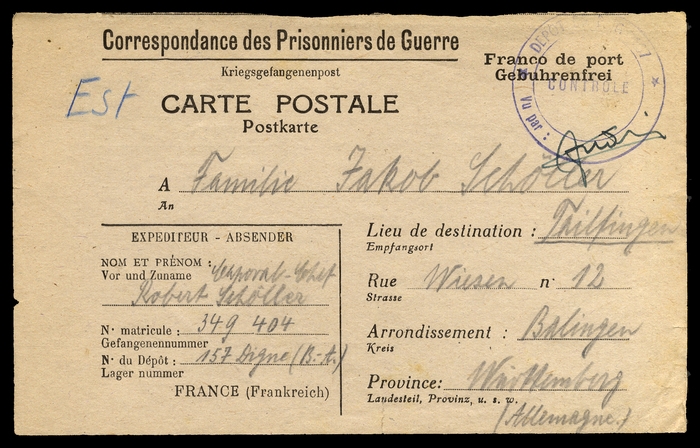 Correspondance des Prisonniers de Guerre
Kriegsgefangenenpost
Franco de port
Gebuhrenfrei
DEPOT
CONTROLE
Vu par :
Est
CARTE POSTALE
Postkarte
A Familie Jakob Schöller
An
Lieu de destination : Tailfingen
Empfangsort
Rue Wiesen n° 12
Strasse
Arrondissement : Balingen
Kreis
Province: Württemberg
Landesteil, Provinz, u. s. w.
(Allemagne.)
EXPEDITEUR - ABSENDER
NOM ET PRÉNOM : Caporal-Chef
Vor und Zuname
Robert Schöller
N° matricule : 349 404
Gefangenennummer
N° du Dépôt : 157 Digne (B.-A.)
Lager nummer
FRANCE (Frankreich)